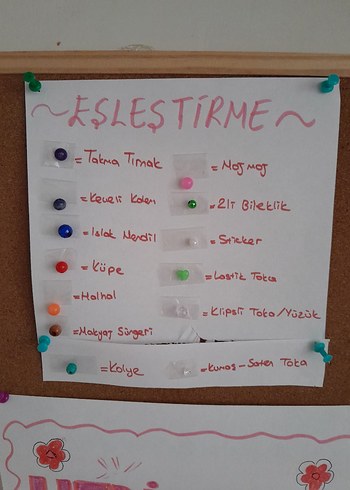 ~EŞLEŞTİRME~
= Takma Tırnak
= Keçeli Kalem
= Islak Mendil
= Küpe
= Halhal
= Makyaj Süngeri
= Kolye
= Moj moj
= 2li Bileklik
= Sticker
= Lastik Toka
= Klipsli Toka/Yüzük
= Kumaş-Saten Toka